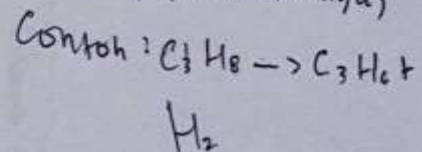 Contoh : C3 H8 -> C3 H6 +
H2